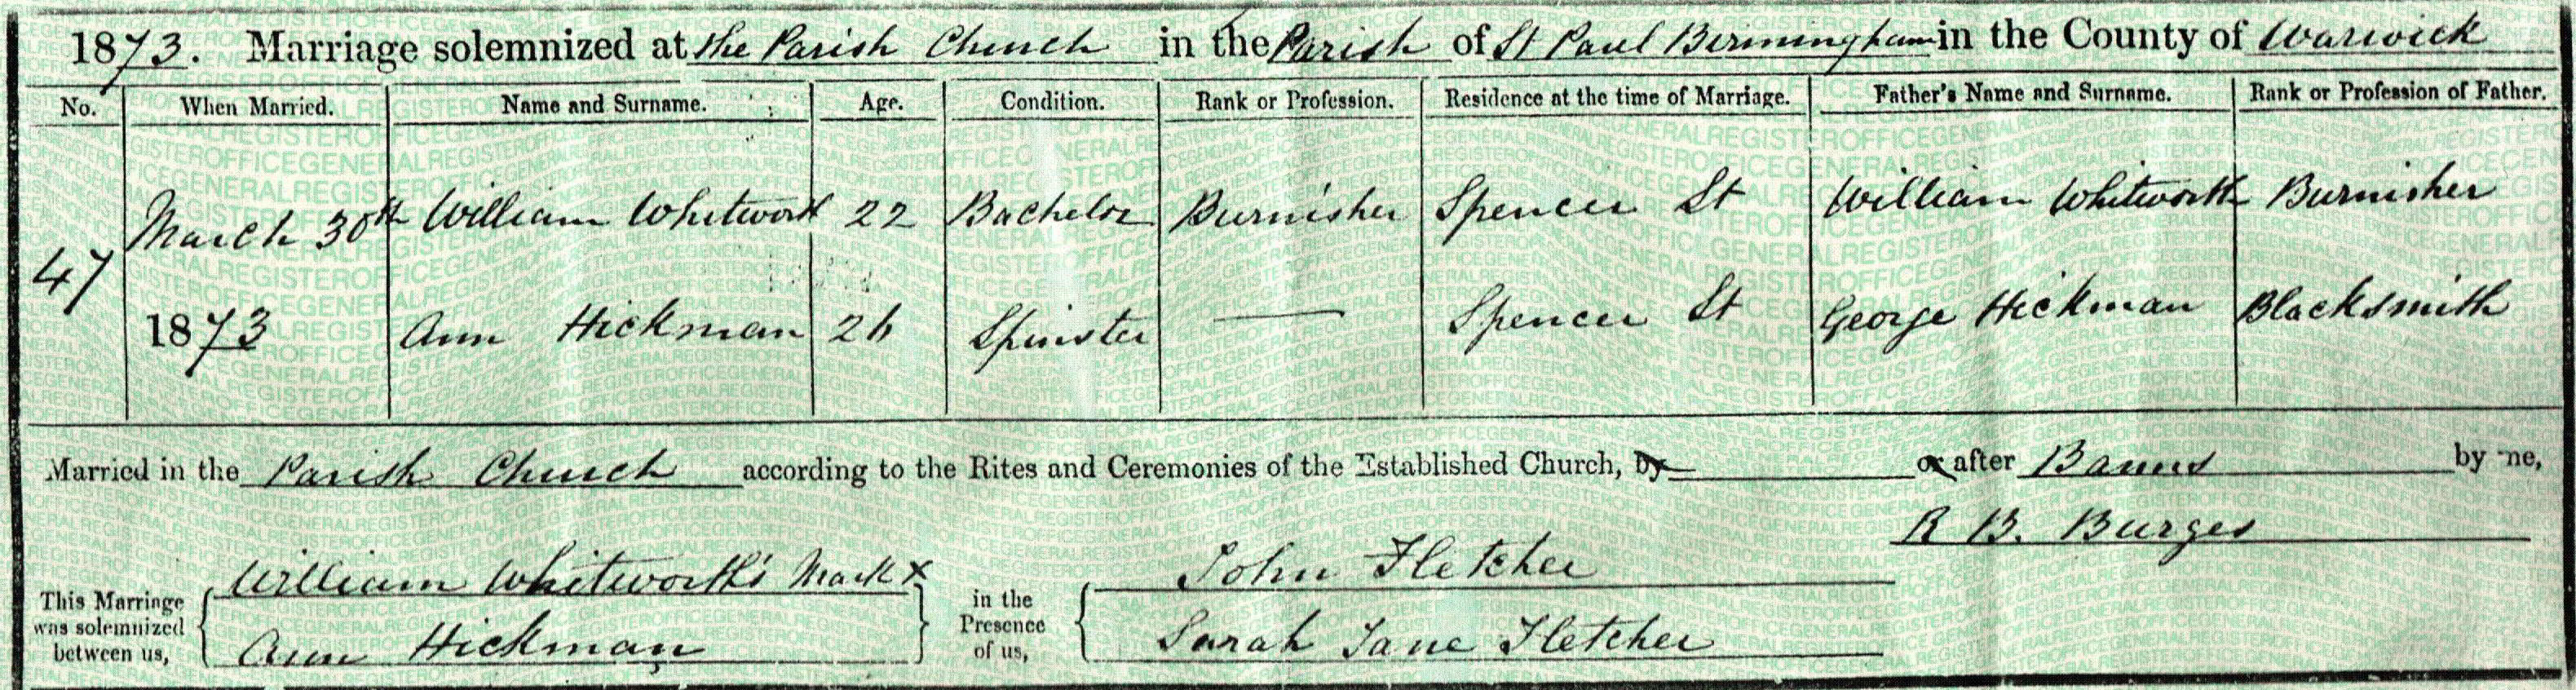 1873. Marriage solemnized at the Parish Church in the Parish of St Paul Birmingham in the County of Warwick
No. When Married. Name and Surname. Age. Condition. Rank or Profession. Residence at the time of Marriage. Father's Name and Surname. Rank or Profession of Father.
March 30th William Whitworth 22 Bachelor Burnisher Spencer St William Whitworth Burnisher
47
1873 Ann Hickman 26 Spinster — Spencer St George Hickman Blacksmith
Married in the Parish Church according to the Rites and Ceremonies of the Established Church, by or after Banns by me,
R B. Burges
William Whitworth's Mark X John Fletcher
This Marriage was solemnized between us, in the Presence of us,
Ann Hickman Sarah Jane Fletcher